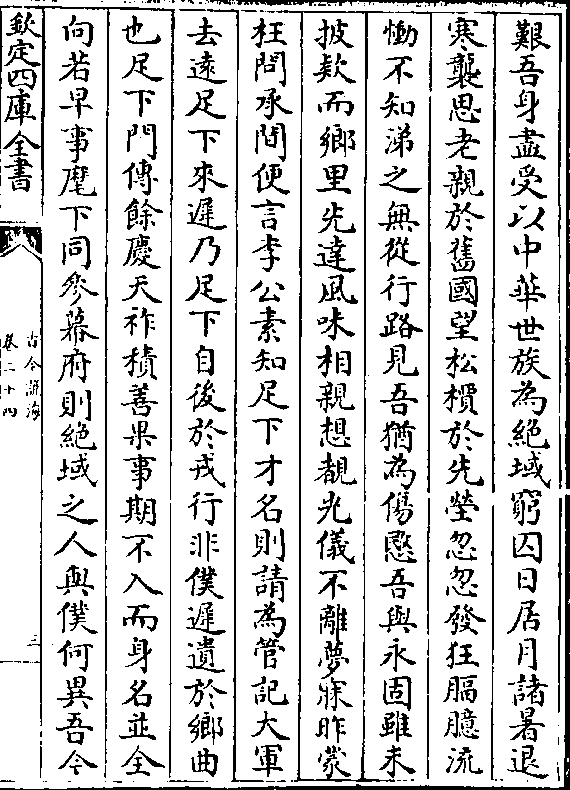 艱吾身盡受以中華世族為絶域窮囚日居月諸暑退
寒襲思老親於舊國望松檟於先塋忽忽發狂腷臆流
慟不知涕之無從行路見吾猶為傷愍吾與永固雖未
披欵而鄉里先達風味相親想覩光儀不離夢寐昨蒙
枉問承間便言李公素知足下才名則請為管記大軍
去遠足下來遲乃足下自後於戎行非僕遲遺於鄉曲
也足下門傳餘慶天祚積善果事期不入而身名並全
向若早事麾下同參幕府則絶域之人與僕何異吾今
欽定四庫全書
古今說海
卷二十四
三